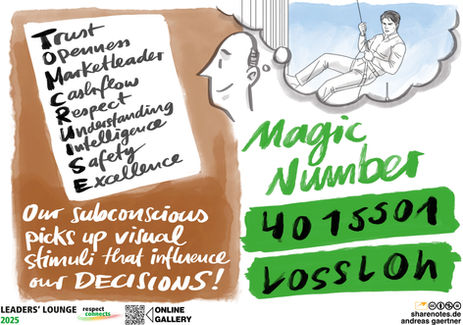 Trust
Openness
Marketleader
Cashflow
Respect
Understanding
Intelligence
Safety
Excellence
Our subconscious
picks up visual
stimuli that influence
our DECISIONS!
Magic
Number
4015501
LOSSLOh
LEADERS' LOUNGE
2025
respect
connects
ONLINE
GALLERY
sharenotes.de
andreas gaertner